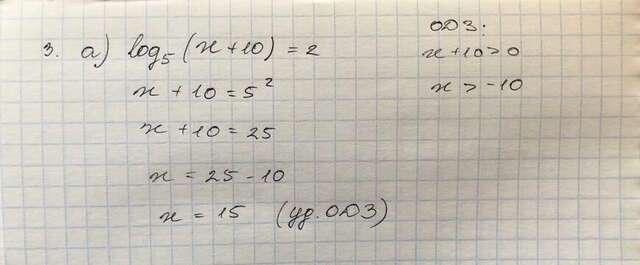 3. а) log₅(x+10) = 2
x + 10 = 5²
x + 10 = 25
x = 25 - 10
x = 15 (уд. ОДЗ)
ОДЗ:
x + 10 > 0
x > -10